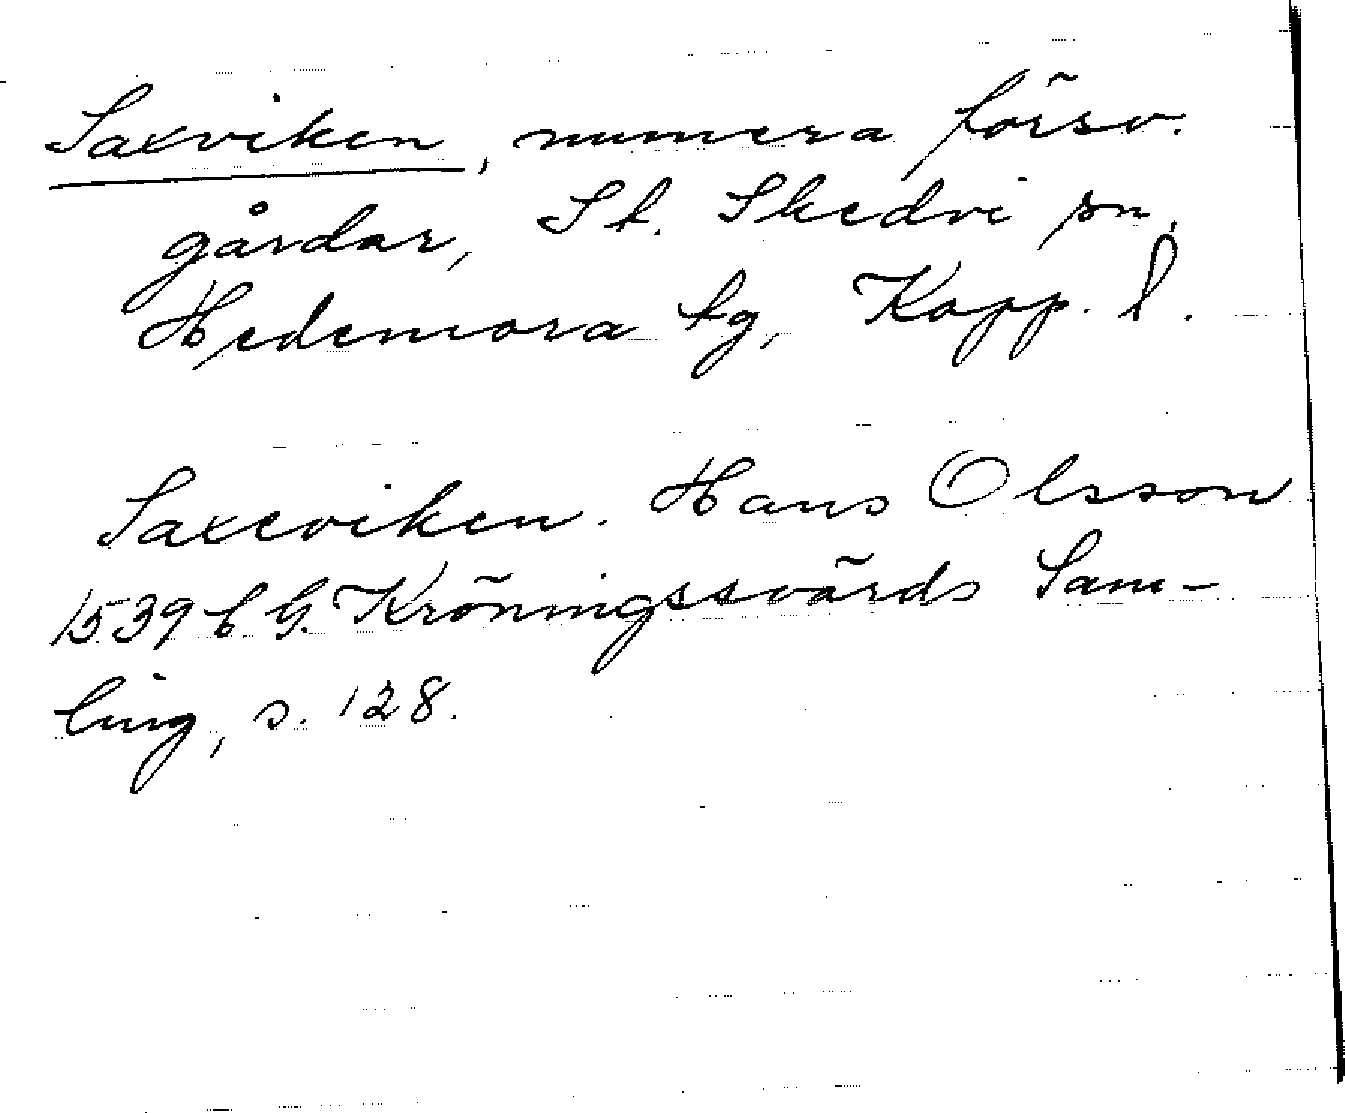 Saxviken, numera försv.
gårdar, St. Skedvi sn,
Hedemora tg, Kopp. l.
Saxeviken. Hans Olsson
1539 C G. Kröningssvärds Sam-
ling, s. 128.